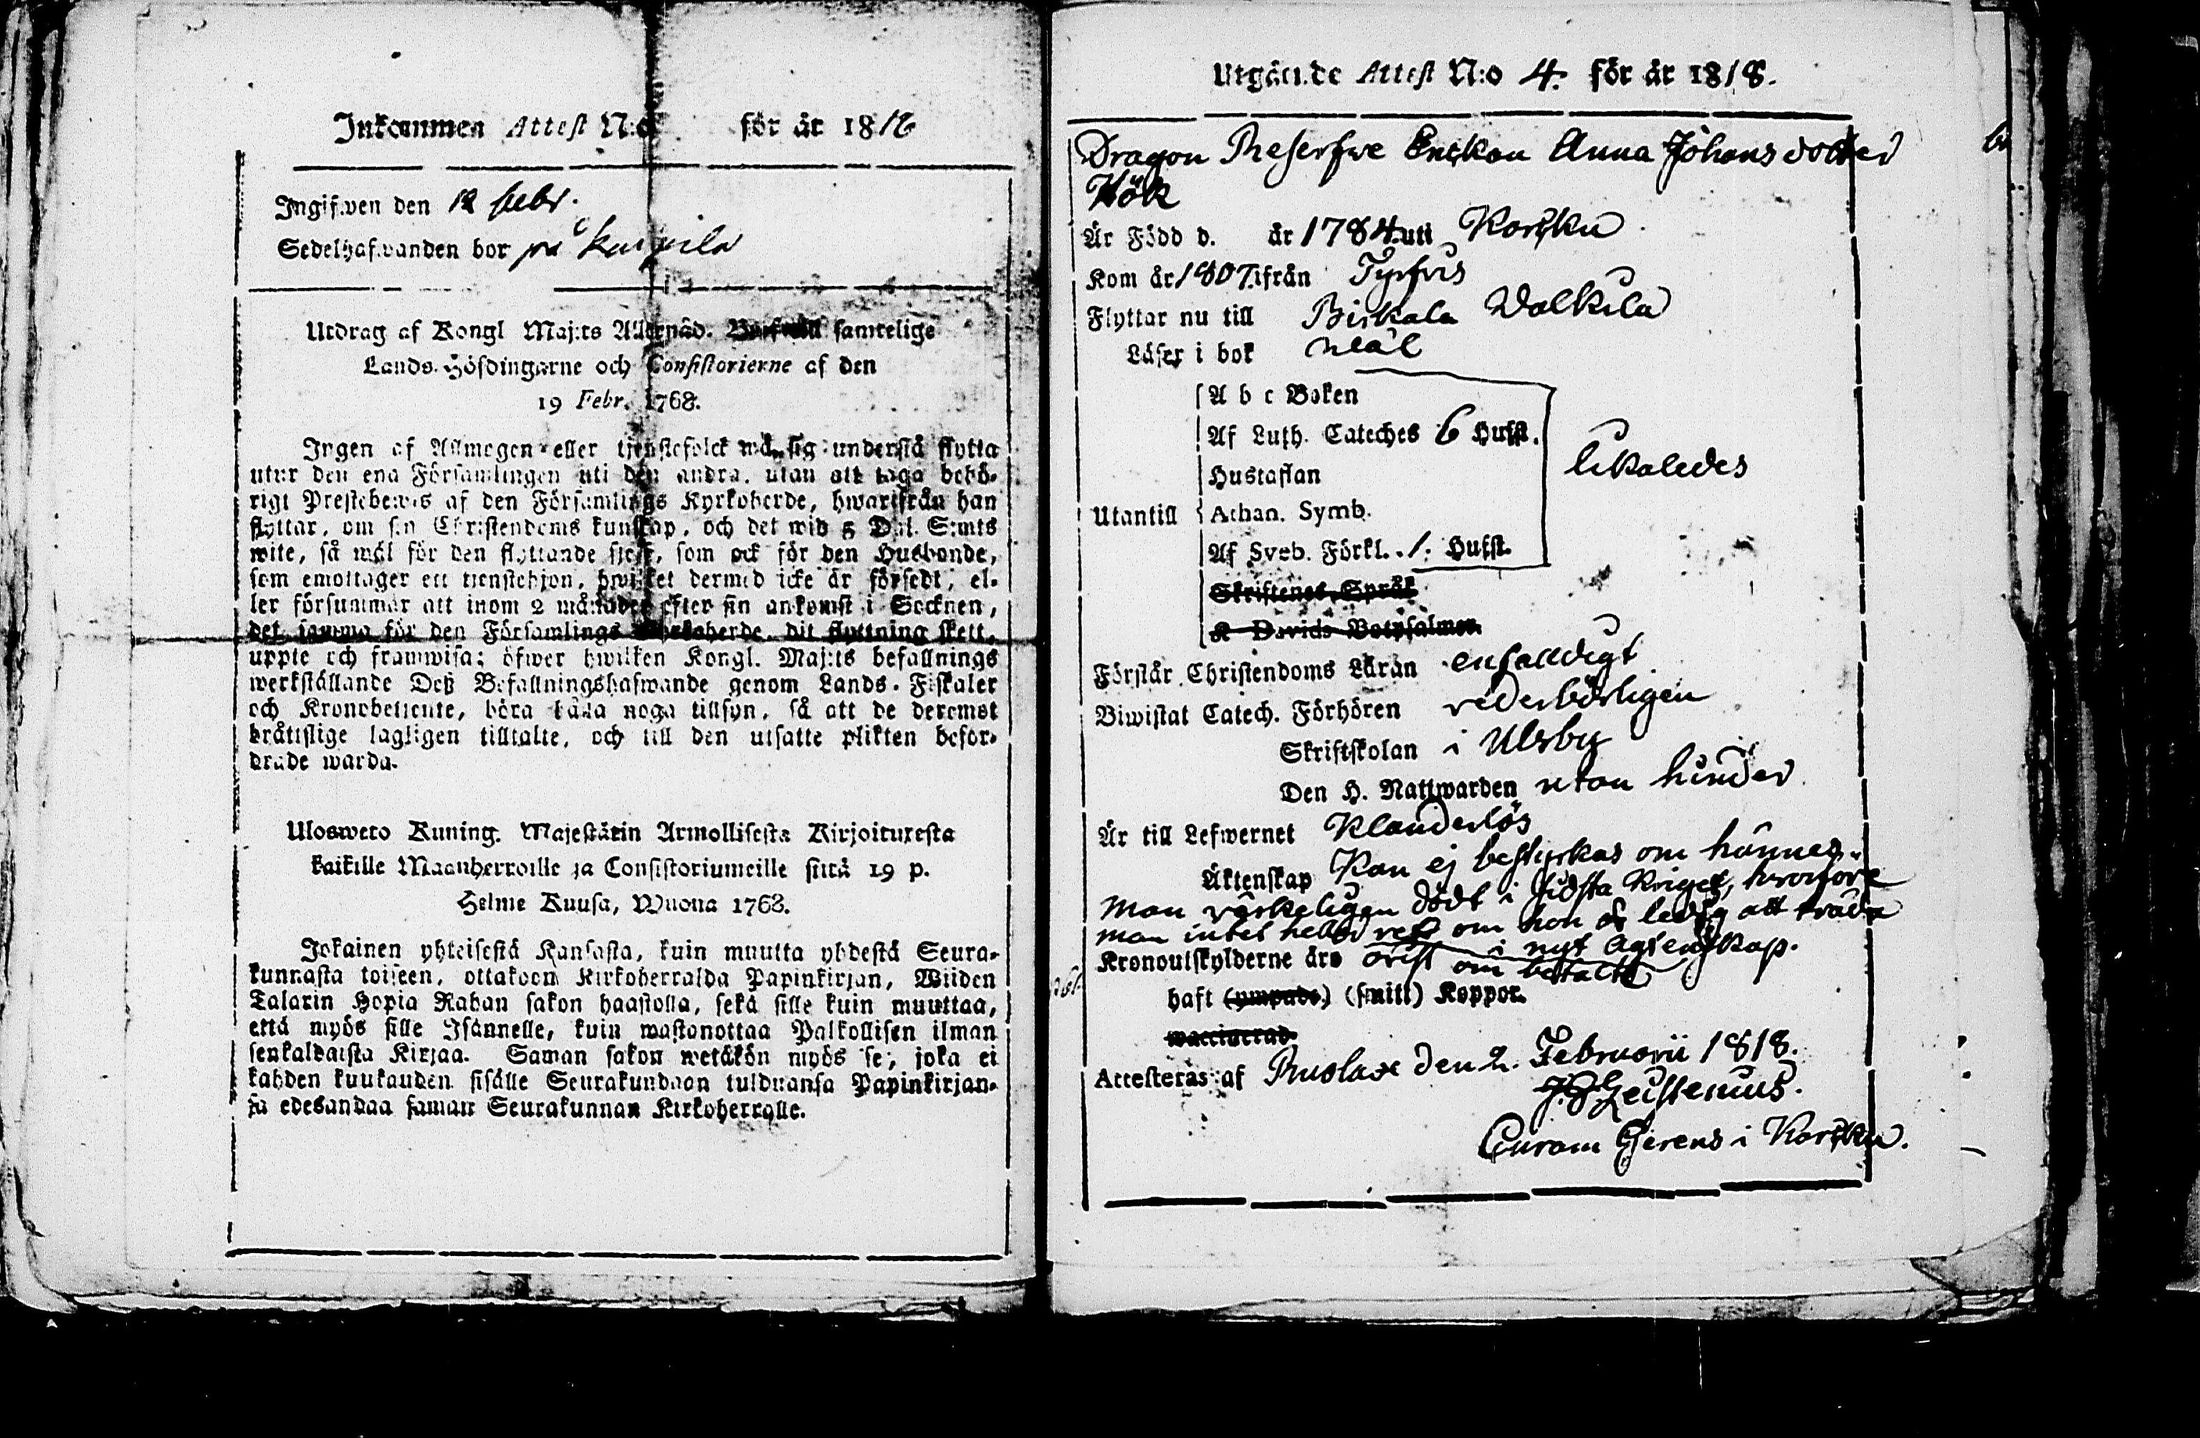 Inkommen Attest N:o för år 1818
Ingifwen den 12 febr.
Sedelhafwanden bor på
Utdrag af Kongl Maj:ts Allernåd. samtelige
Lands-Höfdingarne och Consistorierne af den
19 Febr. 1768.
Ingen af Allmogen eller tjenstefolck må sig understå flytta
utur den ena Församlingen uti den andra, utan att taga behö-
rigt Prestebewis af den Församlings Kyrkoherde, hwarifrån han
flyttar, om sin Christendoms kunskap, och det wid 5 Dal. S:mts
wite, så wäl för den flyttande sjelf, som ock för den Husbonde,
som emottager ett tienstehjon, hwilket dermed icke är försedt, el-
ler försummar att inom 2 månader efter sin ankomst i Socknen,
det samma för den Församlings Kyrkoherde, dit flyttning skett,
uppte och framwisa; öfwer hwilken Kongl. Maj:ts befallnings
werkställande Deß Befallningshafwande genom Lands-Fiskaler
och Kronobetiente, böra hålla noga tillsyn, så att de deremot
bråttslige lagligen tilltalte, och till den utsatte plikten befor-
drade warda.
Ulosweto Kuning. Majestätin Armollisesta Kirjoituxesta
kaikille Maanherroille ja Consistoriumeille siitä 19 p.
Helme Kuusa, Wuona 1768.
Jokainen yhteisestä Kansasta, kuin muutta yhdestä Seura-
kunnasta toiseen, ottakoon Kirkoherralda Papinkirjan, Wiiden
Talarin Hopia Rahan sakon haastolla, sekä sille kuin muuttaa,
että myös sille Isännelle, kuin wastanottaa Palkollisen ilman
senkaldaista Kirjaa. Saman sakon wetäkön myös se, joka ei
kahden kuukauden sisälle Seurakundaan tulduansa Papinkirjan-
sa edesandaa saman Seurakunnan Kirkoherralle.
Utgående Attest N:o 4. för år 1818.
Dragon Reserfwe Enckan Anna Johansdotter
Hök
Är Född d. år 1784 uti Karcku
Kom år 1807 ifrån Tyrfvis
Flyttar nu till Birkala Walkila
Läser i bok wäl
A b c Boken
Af Luth. Cateches 6 Hufst.
Hustaflan
likaledes
Utantill Athan. Symb.
Af Sveb. Förkl. 1. Hufst.
Skriftenes Språk
K Davids Botpsalmer
Förstår Christendoms Läran enfalldigt
Biwistat Catech. Förhören vederbörligen
Skriftskolan i Ulfsby
Den H. Nattwarden utan hinder
Är till Lefwernet Klanderlös
Äktenskap Kan ej bestyrkas om hännes
man värkeligen dödt i sidsta Kriget, hwarföre
man intet heller vet om hon är ledig att träda
i nyt Agtenskap.
Kronoutskylderne äro ovist om betalte
haft (ympade) (smitt) Koppor.
waccinerad
Attesteras af Ruolax den 2. Februarii 1818.
Zeistenius.
Curam Gerens i Karcku.